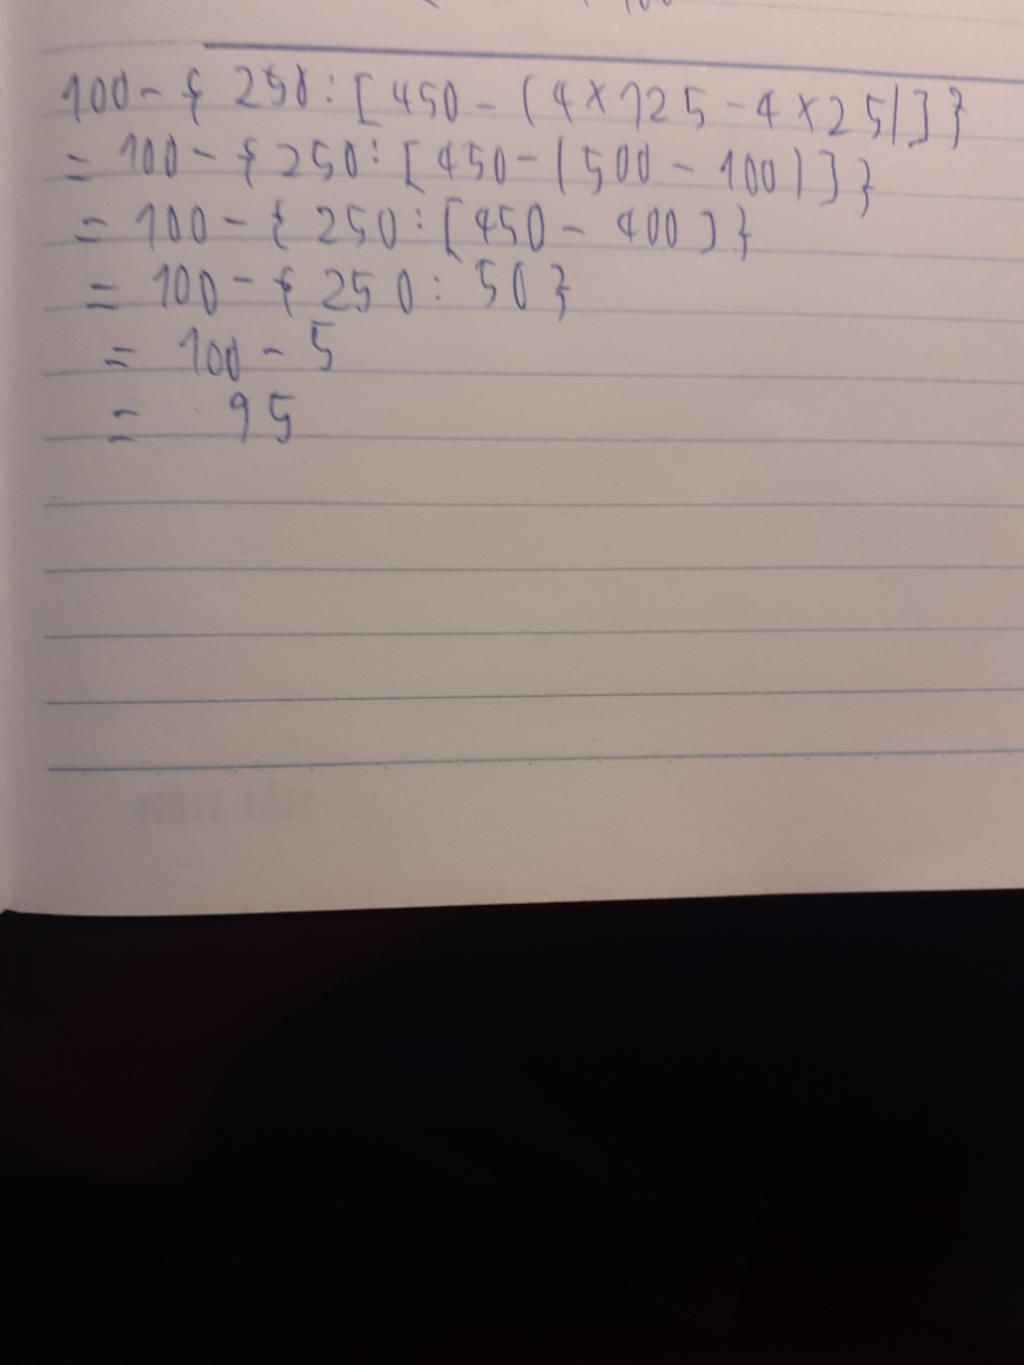 100 - { 250 : [ 450 - ( 4 × 125 - 4 × 25 ) ] }
= 100 - { 250 : [ 450 - ( 500 - 100 ) ] }
= 100 - { 250 : [ 450 - 400 ] }
= 100 - { 250 : 50 }
= 100 - 5
= 95